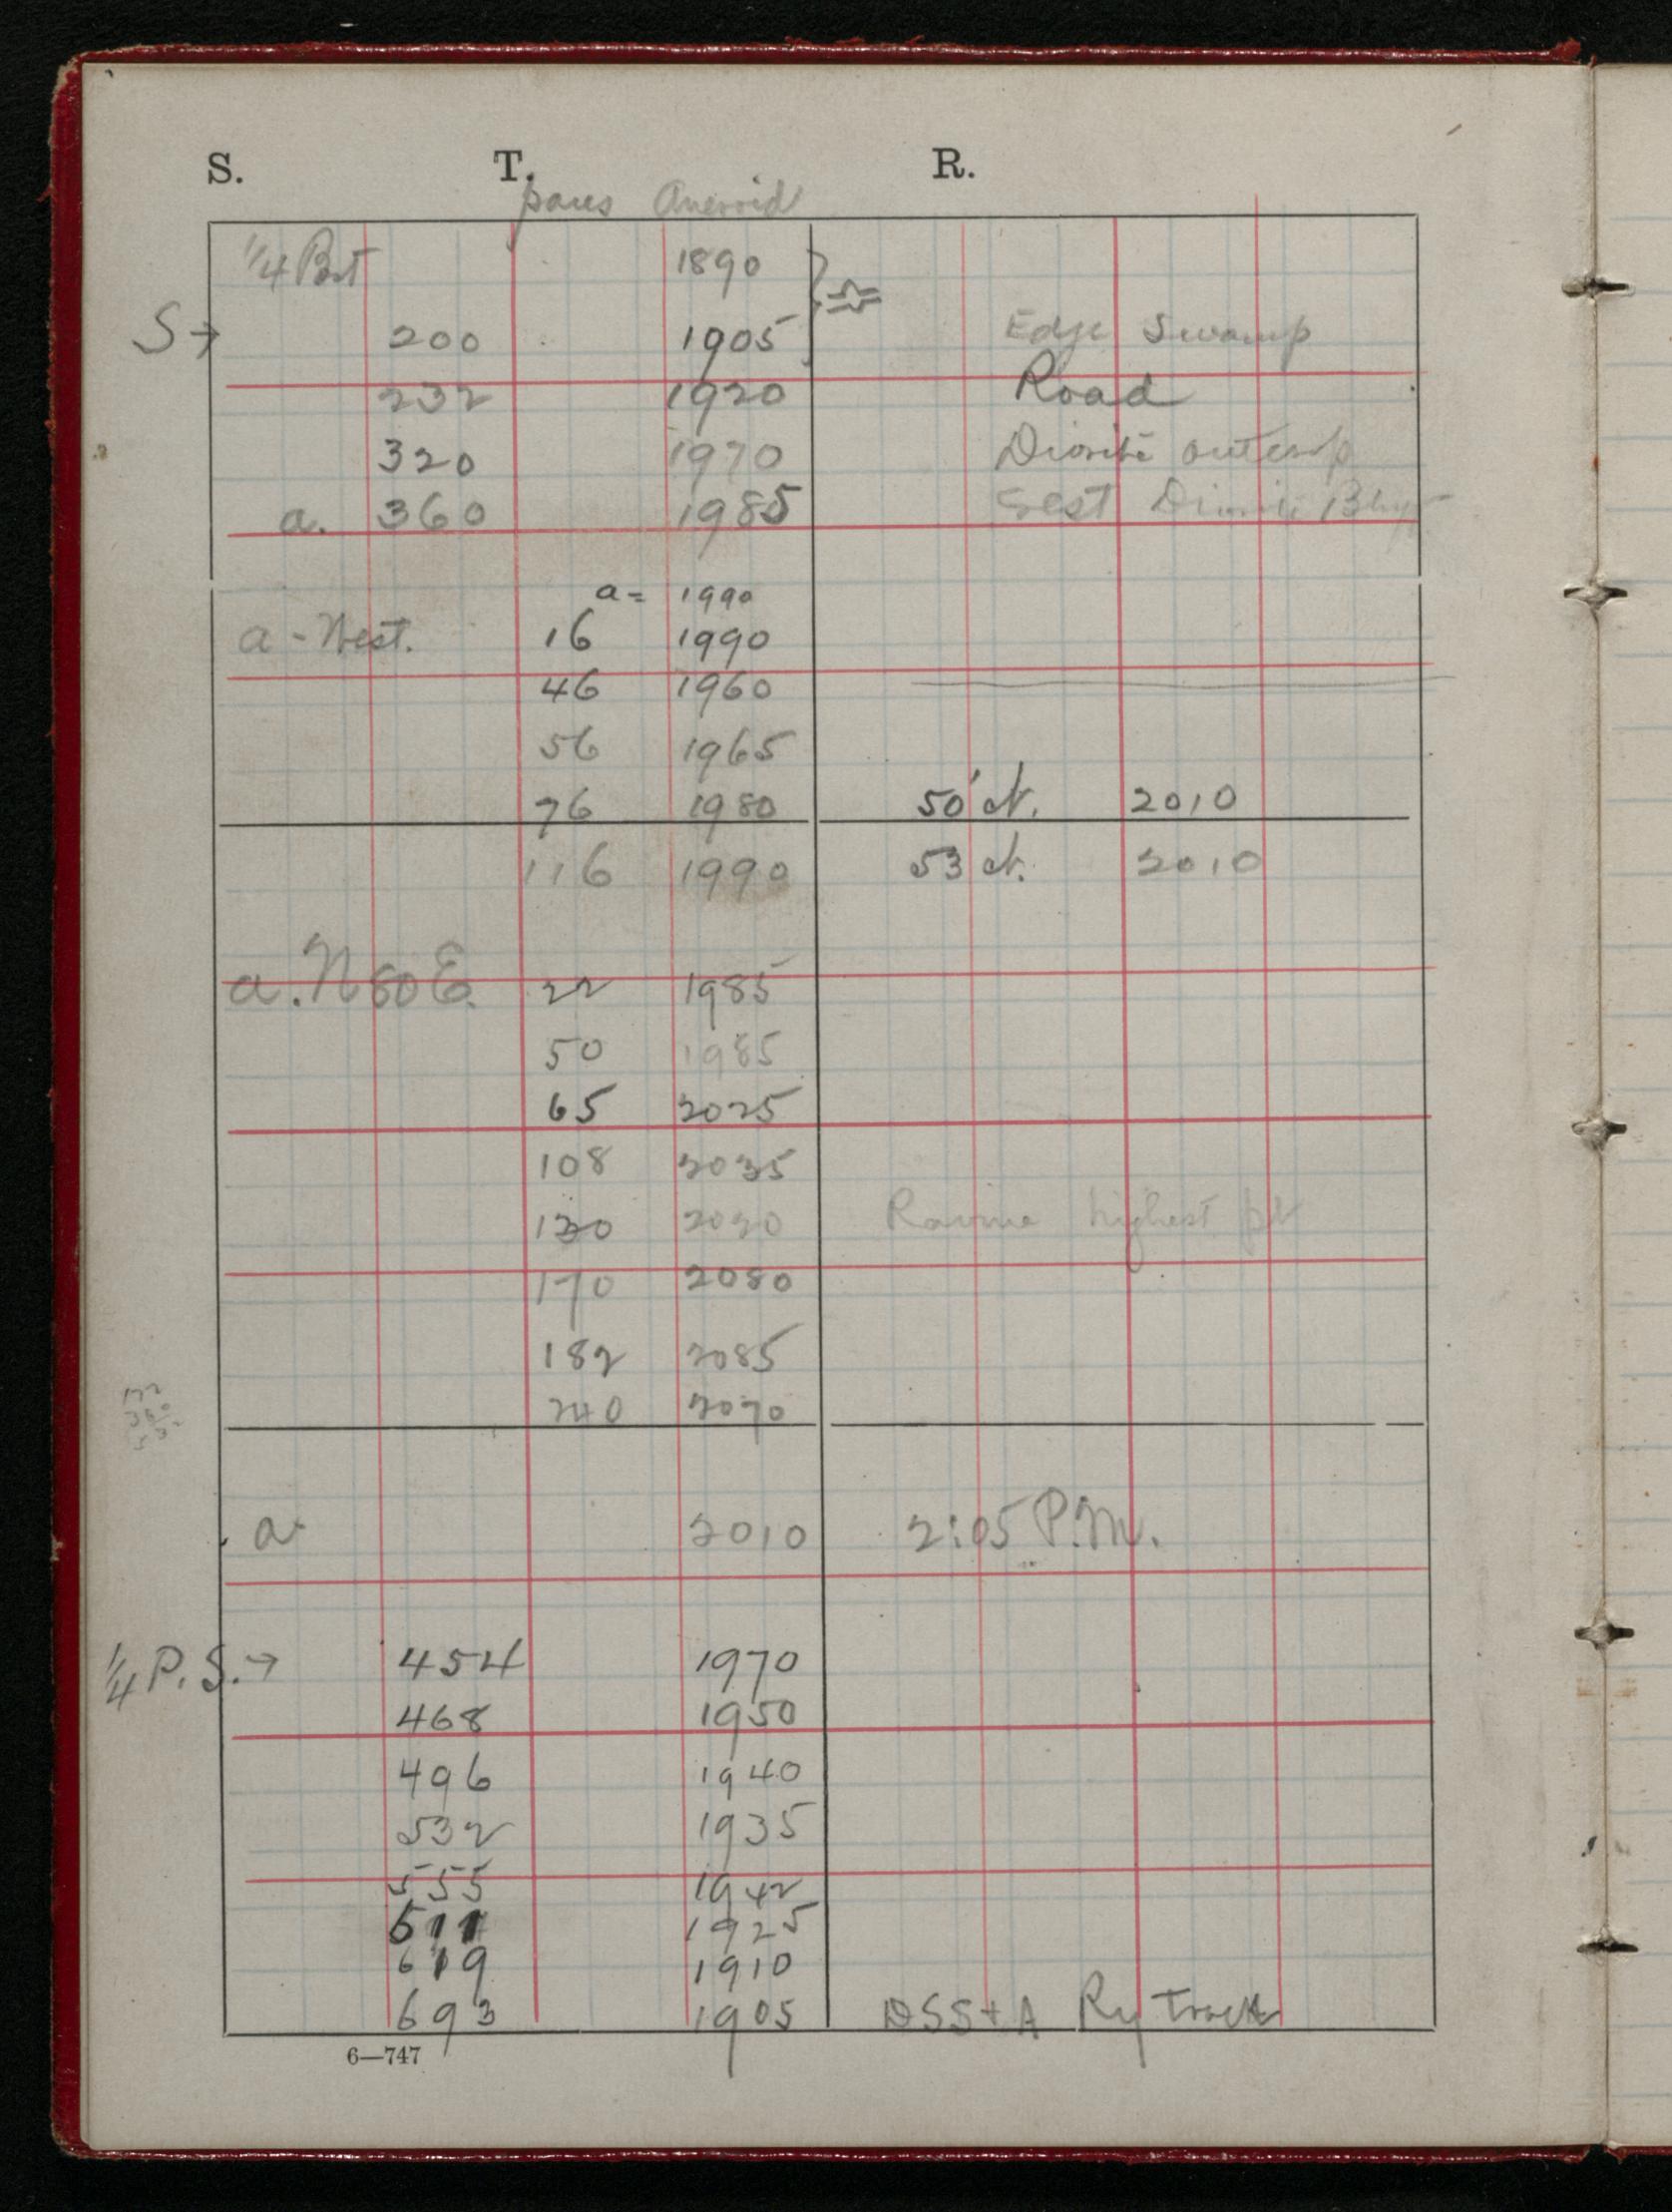 S. T. R.
paces Aneroid
1/4 Post 1890
S→ 200 1905 Edge Swamp
232 1920 Road
320 1970 Diorite outcrop
a. 360 1985 Diorite
a = 1990
a - West. 16 1990
46 1960
56 1965
76 1980 50' N. 2010
116 1990 53 N. 2010
a. N 80 E. 22 1985
50 1985
65 2025
108 2035
130 2030 Ravine highest pt
170 2080
182 2085
240 2070
a 2010 2:05 P.M.
1/4 P. S.→ 454 1970
468 1950
496 1940
532 1935
555 1942
611 1925
619 1910
693 1905 DSS+A Ry Track
6—747